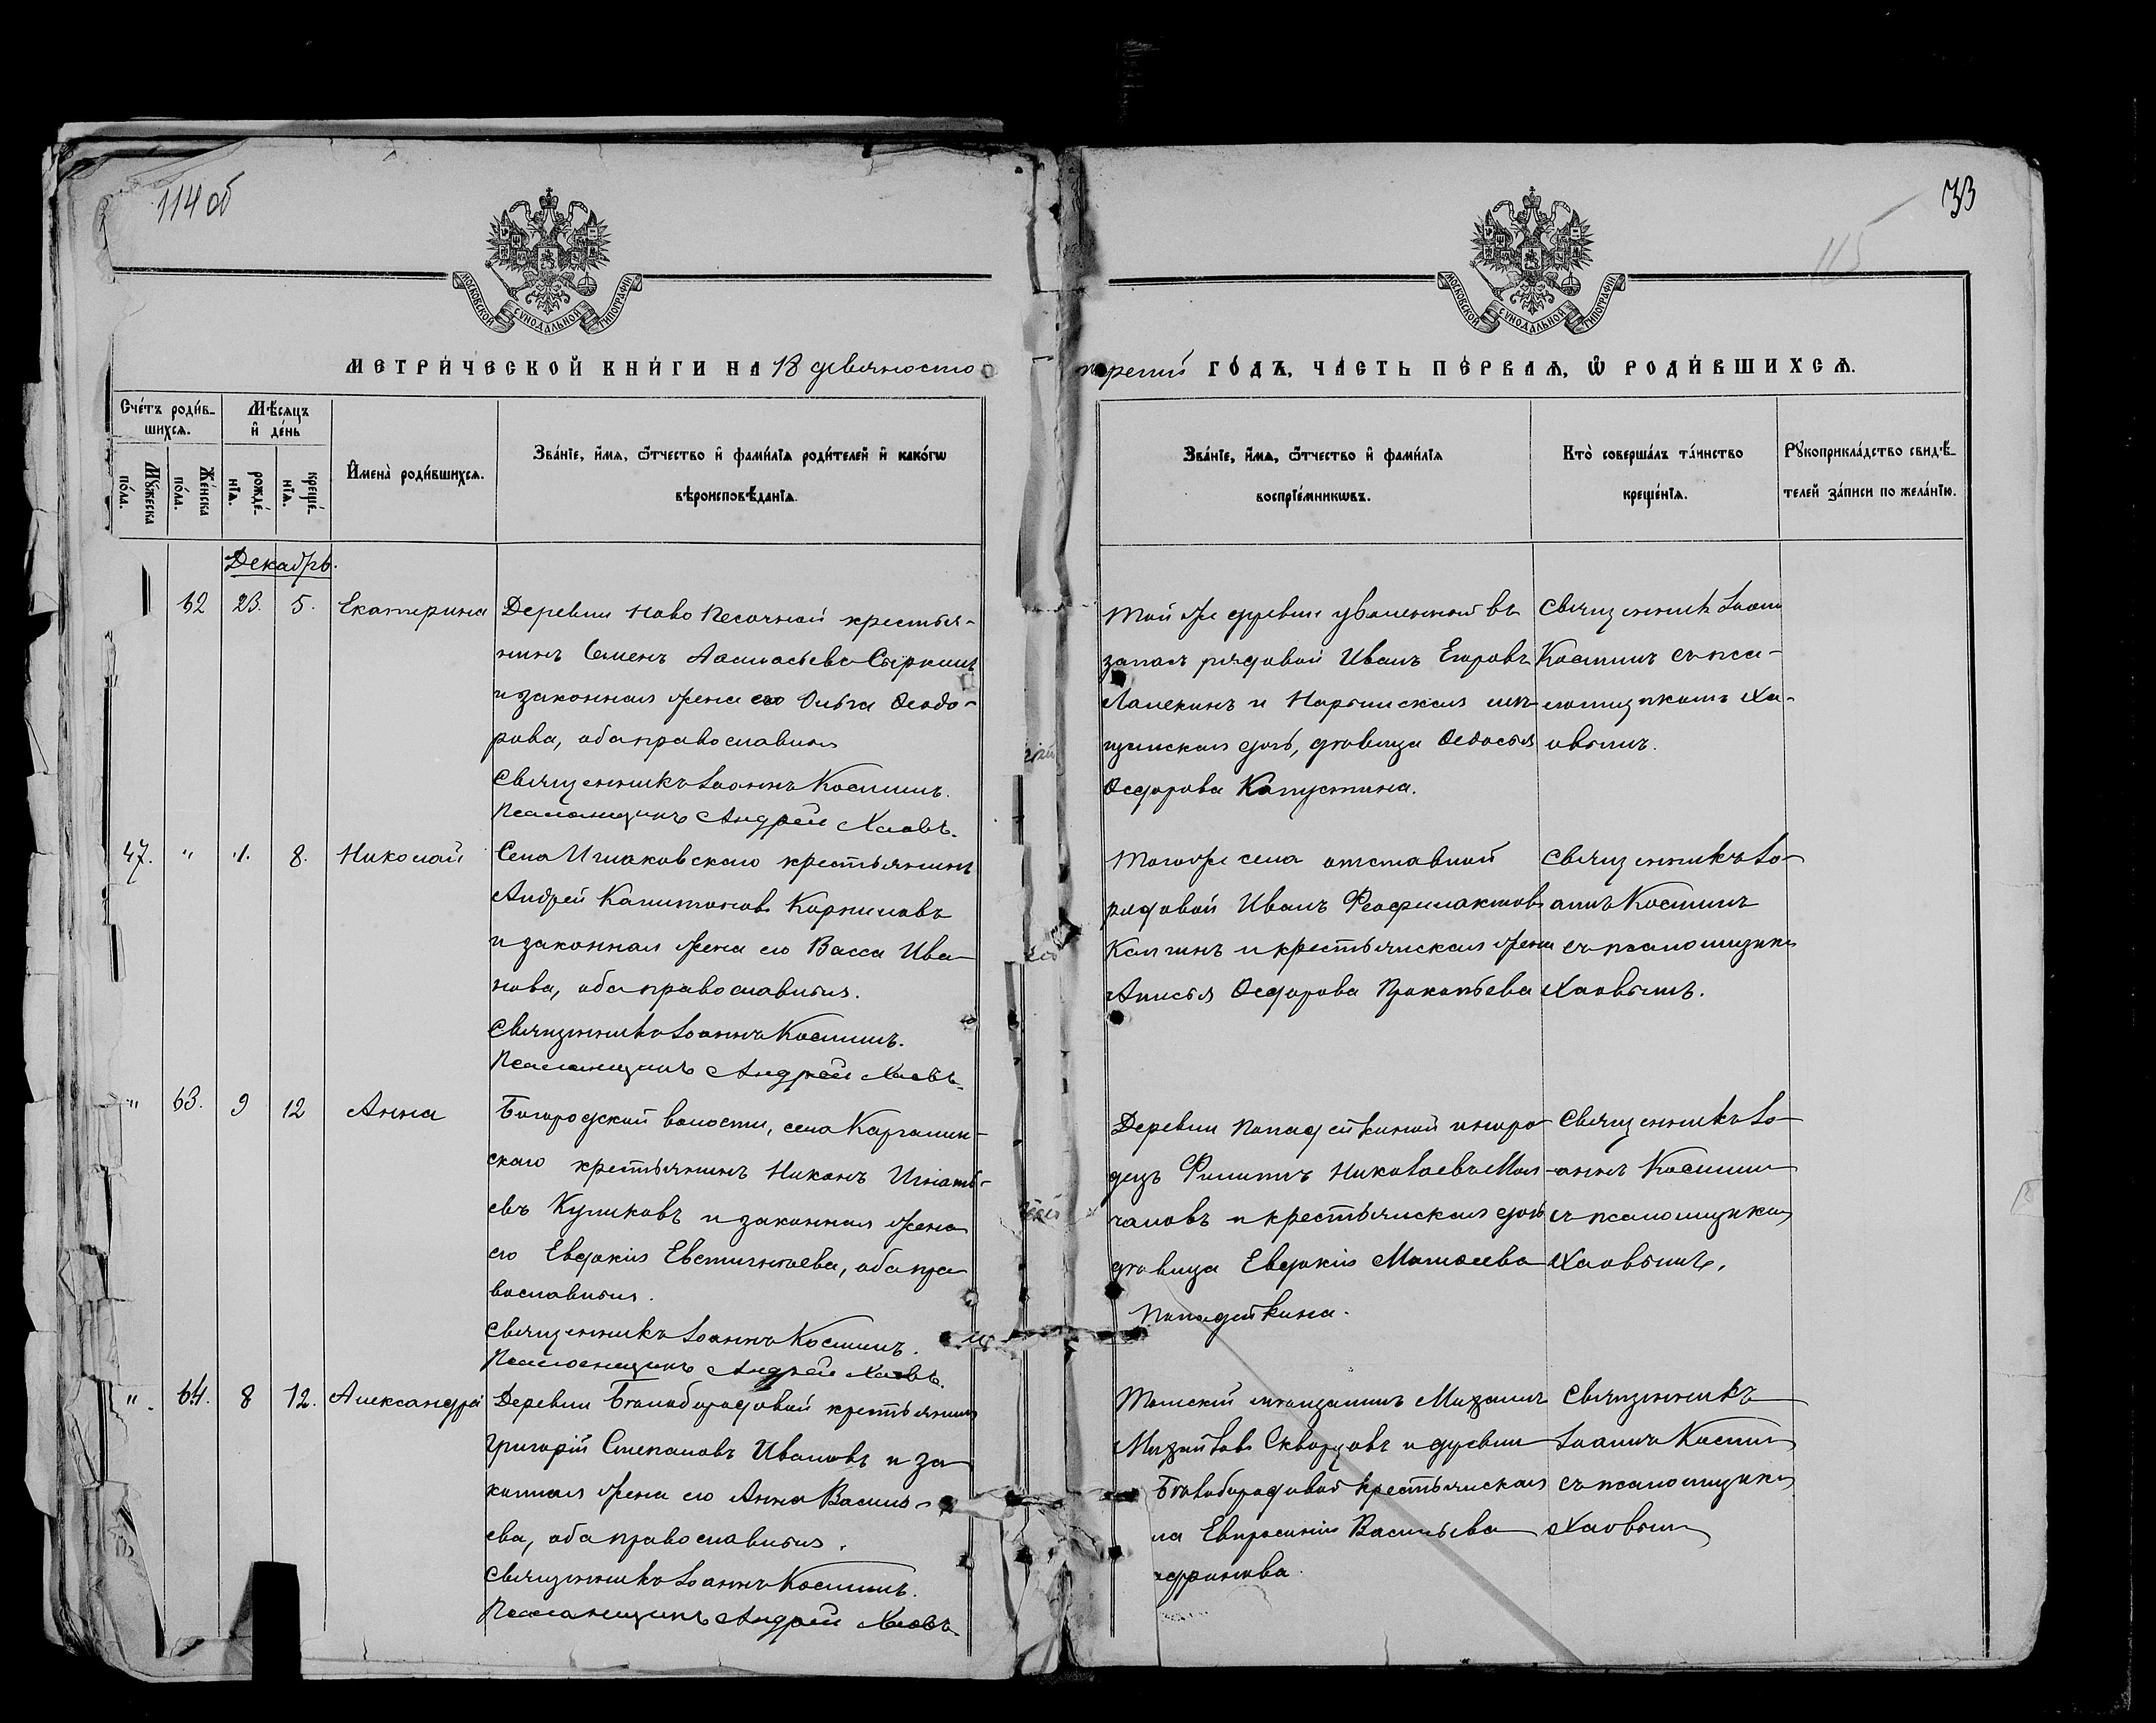 114 об
33
115
МОСКОВСКОЙ СУНОДАЛЬНОЙ ТИПОГРАФІИ
МОСКОВСКОЙ СУНОДАЛЬНОЙ ТИПОГРАФІИ
МЕТРИ́ЧЕСКОЙ КНИ́ГИ НА 18 девяносто третій ГО́ДЪ, ЧА́СТЬ ПЕ́РВАѦ, Ѡ РОДИ́ВШИХСѦ.
Сче́тъ роди́в-
шихсѧ.
Мꙋ́жеска по́ла.
Же́нска по́ла.
Мѣ́сѧцъ
и҆ де́нь
рожде́-
нїѧ.
креще́-
нїѧ.
И҆мена̀ роди́вшихсѧ.
Зва́нїе, и҆́мѧ, ѻ҆́тчество и҆ фами́лїѧ роди́телей и҆ како́гѡ
вѣроисповѣ́данїѧ.
Зва́нїе, и҆́мѧ, ѻ҆́тчество и҆ фами́лїѧ
воспрїе́мникѡвъ.
Кто̀ соверша́лъ та́инство
креще́нїѧ.
Рꙋкоприкла́дство свидѣ́-
телей за́писи по жела́нїю.
Декабрь.
62 23. 5. Екатерина
Деревни Ново Песочной крестья-
нинъ Семенъ Сыркинъ
и законная жена его Ольга Ѳеодо-
рова, оба православные
Священникъ Іоаннъ Косминъ.
Псаломщикъ Андрей Хаовъ.
Той же деревни уволенный въ
запасъ рядовой Иванъ Егоровъ
Лапекинъ и Нарымская мѣ-
щанская дочь, дѣвица Ѳедосья
Ѳедорова Капустина.
Священникъ Іоаннъ
Косминъ съ пса-
ломщикомъ Ха-
овымъ.
47. " 1. 8. Николай
Села крестьянинъ
Андрей Капитоновъ Корниловъ
и законная жена его Васса Ива-
нова, оба православные.
Священникъ Іоаннъ Косминъ.
Псаломщикъ Андрей Хаовъ.
Того же села отставной
рядовой Иванъ Феофилактовъ
и крестьянская жена
Анисья Ѳедорова Прокопьева
Священникъ Іо-
аннъ Косминъ
съ псаломщикомъ
Хаовымъ.
" 63. 9 12 Анна
Богородской волости, села Каргалин-
скаго крестьянинъ Никонъ Игнать-
евъ Куликовъ и законная жена
его Евдокія Евстигнѣева, оба пра-
вославные.
Священникъ Іоаннъ Косминъ.
Псаломщикъ Андрей Хаовъ.
Деревни Попадейкиной иноро-
децъ Филиппъ Николаевъ Мол-
чановъ и крестьянская дочь
дѣвица Евдокія Моисеева
Попадейкина.
Священникъ Іо-
аннъ Косминъ
съ псаломщикомъ
Хаовымъ.
" 64. 8 12. Александра
Деревни Бѣлобородовой крестьянинъ
Григорій Степановъ Ивановъ и за-
конная жена его Анна Василь-
ева, оба православные.
Священникъ Іоаннъ Косминъ.
Псаломщикъ Андрей Хаовъ.
Томскій мѣщанинъ Михаилъ
Михайловъ Скворцовъ и деревни
Бѣлобородовой крестьянская
Васильева
Священникъ
Іоаннъ Косминъ
съ псаломщикомъ
Хаовымъ